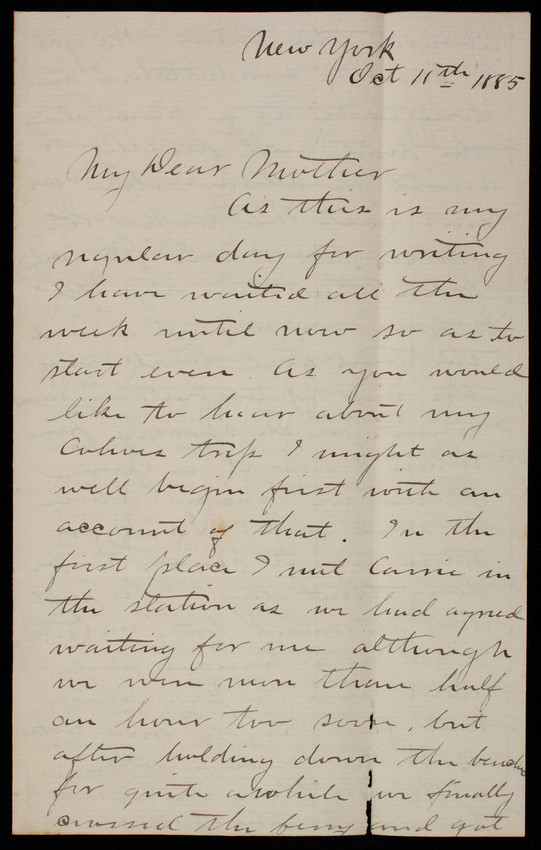 New York
Oct 11th 1885
My Dear Mother
As this is my
regular day for writing
I have waited all the
week until now so as to
start even. As you would
like to hear about my
trip I might as
well begin first with an
account of that. In the
first place I met Carrie in
the station as we had agreed
waiting for me although
we were more than half
an hour too soon, but
after holding down the benches
for quite awhile we finally
crossed the ferry and got